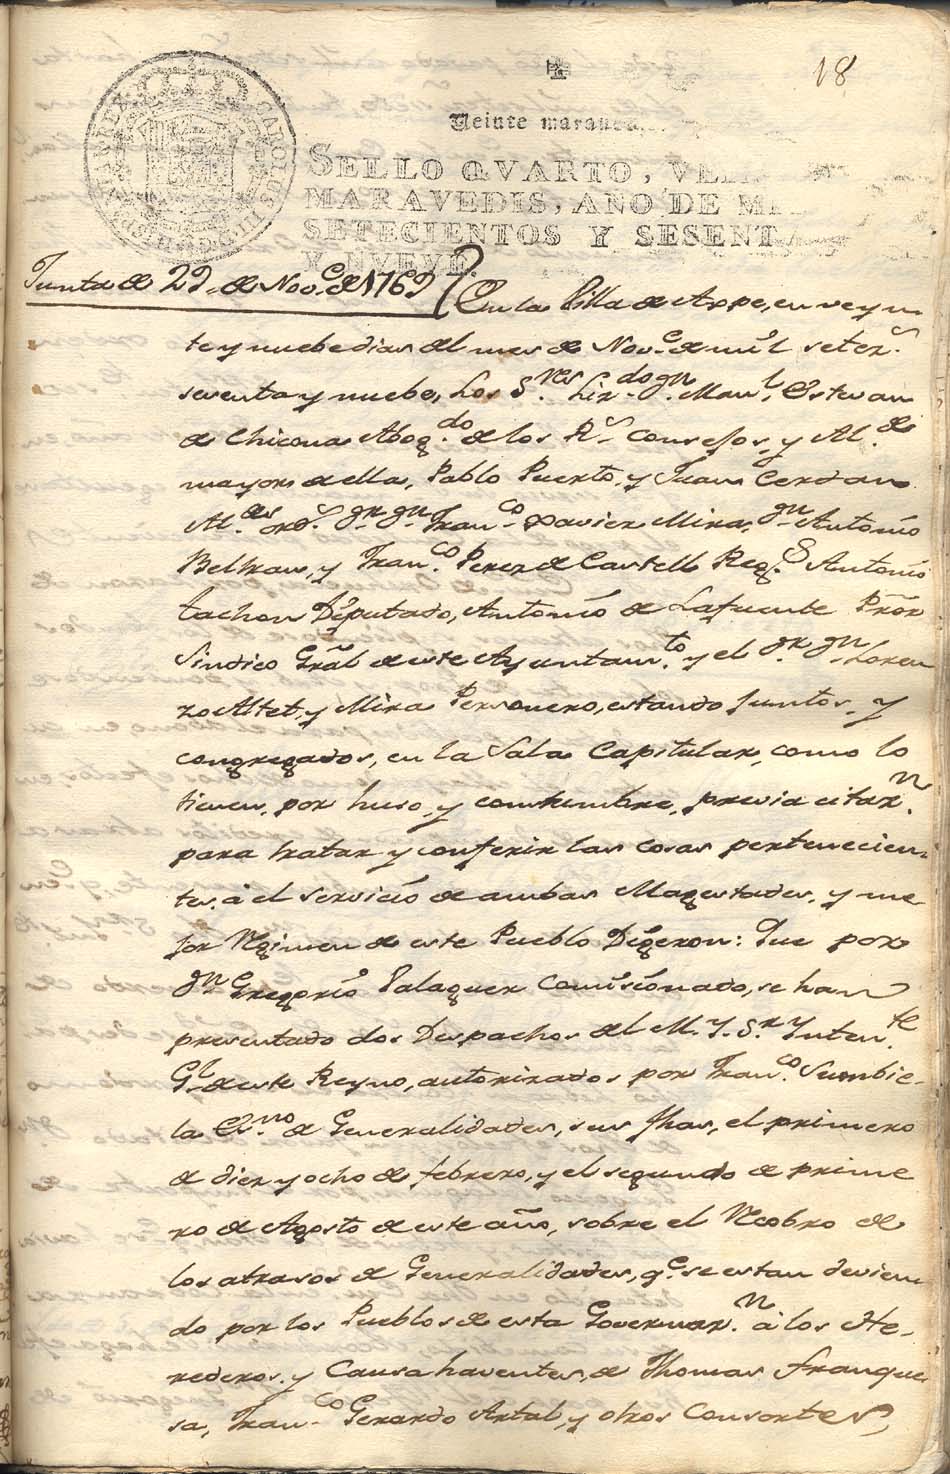 18
Veinte marave
SELLO QVARTO, VEI
MARAVEDIS, AÑO DE MI
SETECIENTOS Y SESENT
Y NVEVE.
CAROLUS III D. G. HISPANIAR. REX
Junta de 29,, de Nov.e de 1769
En la Villa de Aspe, en veyn
te y nuebe dias del mes de Nov.e de mil setez.s
sesenta y nuebe, Los S.res Liz.do Dn. Man.l Estevan
de Chicona Abog.do de los R.s Consejos, y Al.de
mayor de ella, Pablo Puerto, y Juan Cerdan
Al.des ord.s Dn. Dn. Fran.co Xavier Mira, Dn. Antonio
Beltran, y Fran.co Perez de Castell Reg.s Antonio
Tachon Diputado, Antonio de Lafuente Prõr
Sindico Grãl de este Ayuntam.to y el Dr. Dn. Loren
zo Altet, y Mira Personero, estando juntos, y
congregados, en la Sala Capitular, como lo
tienen, por huso, y comtumbre, previa citaz.n
para tratar y conferir las cosas pertenecien-
tes, à el servicio de ambas Magestades, y me-
jor Regimen de este Pueblo Digeron: Que por
Dn. Gregorio Palaguer Comisionado, se han
presentado dos Despachos del M. Y. S.r Ynten.te
G.l de este Reyno, autorizados por Fran.co Sumbie-
la Es.no de Generalidades, sus fhas, el primero
de diez y ocho de febrero, y el segundo de prime
ro de Agosto de este año, sobre el Recobro de
los atrasos de Generalidades, q.e se estan devien
do por los Pueblos de esta Governaz.n à los He-
rederos, y Causa haventes, de Thomas Franque
sa, Fran.co Gerardo Artal, y otros Consortes,